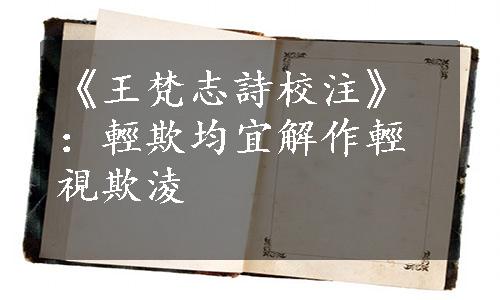 《王梵志詩校注》
：輕欺均宜解作輕
視欺淩